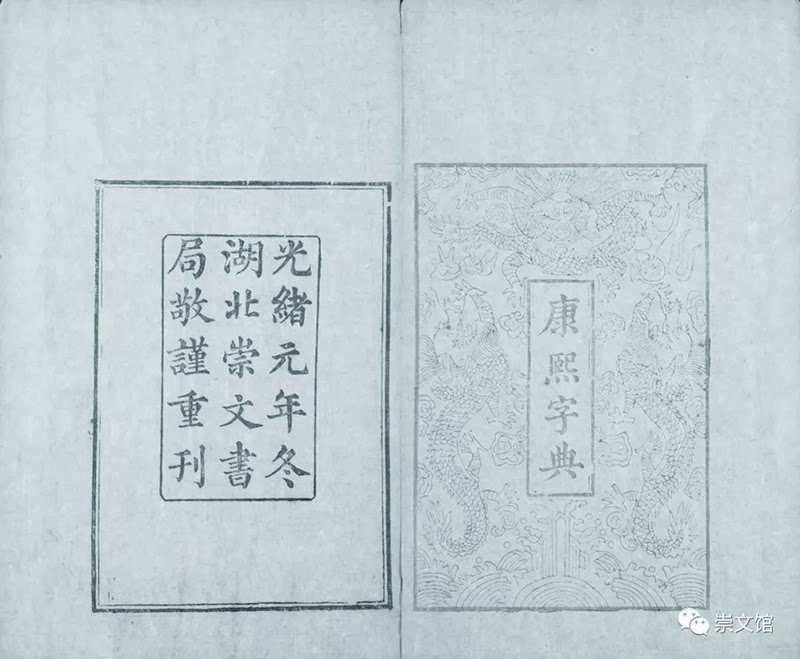 康熙字典
光緒元年冬
湖北崇文書
局敬謹重刊
崇文馆